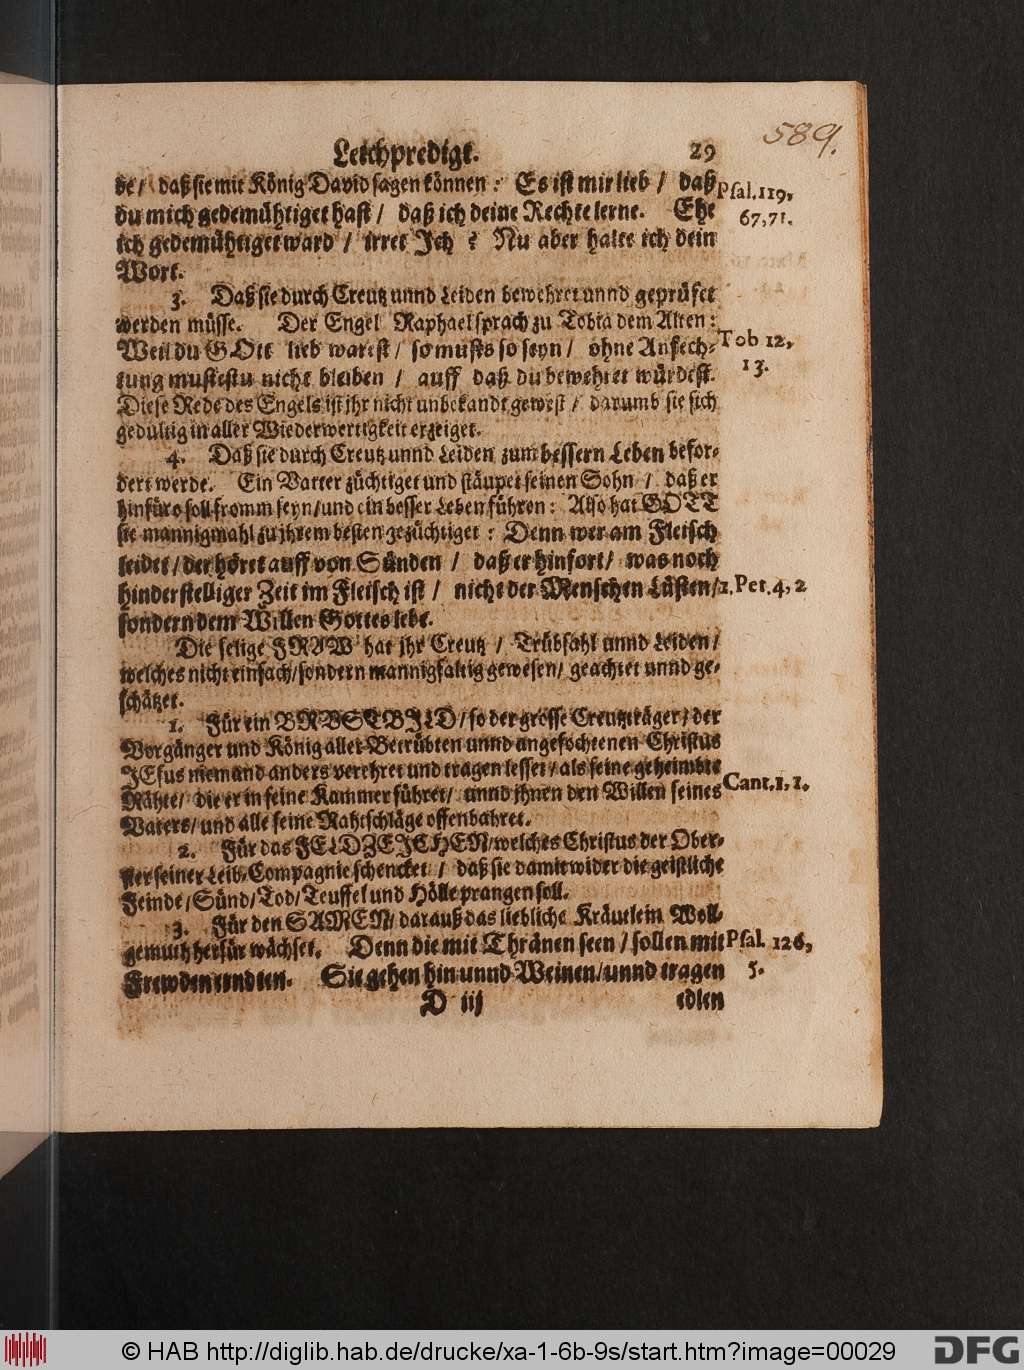 589.
Leichpredigt. 29
de / daß sie mit König David sagen können: Es ist mir lieb / daß
du mich gedemühtiget hast / daß ich deine Rechte lerne. Ehe
ich gedemühtiget ward / irret Ich ? Nu aber halte ich dein
Wort.
Psal. 119,
67, 71.
3. Daß sie durch Creutz unnd Leiden bewehret unnd geprüfet
werden müsse. Der Engel Raphael sprach zu Tobia dem Alten:
Weil du GOtt lieb warest / so musts so seyn / ohne Anfech-
tung mustestu nicht bleiben / auff daß du bewehret würdest.
Diese Rede des Engels ist ihr nicht unbekandt gewest / darumb sie sich
gedültig in aller Wiederwertigkeit erzeiget.
Tob 12,
13.
4. Daß sie durch Creutz unnd Leiden zum bessern Leben befor-
dert werde. Ein Vatter züchtiget und stäupet seinen Sohn / daß er
hinfüro soll fromm seyn / und ein besser Leben führen: Also hat GOTT
sie mannigmahl zu ihrem besten gezüchtiget: Denn wer am Fleisch
leidet / der höret auff von Sünden / daß er hinfort / was noch
hinderstelliger Zeit im Fleisch ist / nicht der Menschen Lüsten /
sondern dem Willen Gottes lebe.
1. Pet. 4, 2
Die selige FRAW hat ihr Creutz / Trübsahl unnd Leiden /
welches nicht einfach / sondern mannigfaltig gewesen / geachtet unnd ge-
schätzet.
1. Für ein BRVSTBILD / so der grosse Creutzträger / der
Vorgänger und König aller Betrübten unnd angefochtenen Christus
JEsus niemand anders verehret und tragen lesset / als seine geheimbte
Rähte / die er in seine Kammer führet / unnd ihnen den Willen seines
Vaters / und alle seine Rahtschläge offenbahret.
Cant. 1, 1.
2. Für das FELDZEICHEN / welches Christus der Ober-
ster seiner Leib-Compagnie schencket / daß sie damit wider die geistliche
Feinde / Sünd / Tod / Teuffel und Hölle prangen soll.
3. Für den SAMEN / darauß das liebliche Kräutlein Woll-
gemuth herfür wächset. Denn die mit Thränen seen / sollen mit
Frewden erndten. Sie gehen hin unnd Weinen / unnd tragen
Psal. 126,
5.
D iij edlen
© HAB http://diglib.hab.de/drucke/xa-1-6b-9s/start.htm?image=00029
DFG